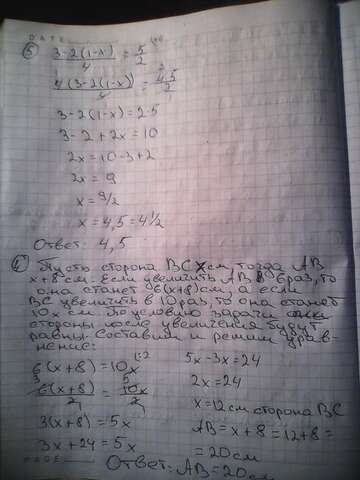 DATE
5) (3-2(1-x))/4 = 5/2
4(3-2(1-x))/4 = 4·5/2
3-2(1-x)=2·5
3-2+2x=10
2x=10-3+2
2x=9
x=9/2
x=4,5=4 1/2
Ответ: 4,5
Пусть сторона BC xсм, тогда AB
x+8 см. Если увеличить AB в 6 раз, то
она станет 6(x+8) см, а если
BC увеличить в 10 раз, то она станет
10x см. По условию задачи
стороны после увеличения будут
равны. Составим и решим урав-
нение:
6(x+8)=10x |:2
6(x+8)/2 = 10x/2
3(x+8)=5x
3x+24=5x
5x-3x=24
2x=24
x=12см сторона BC
AB=x+8=12+8=
=20см
Ответ: AB=20см
PAGE